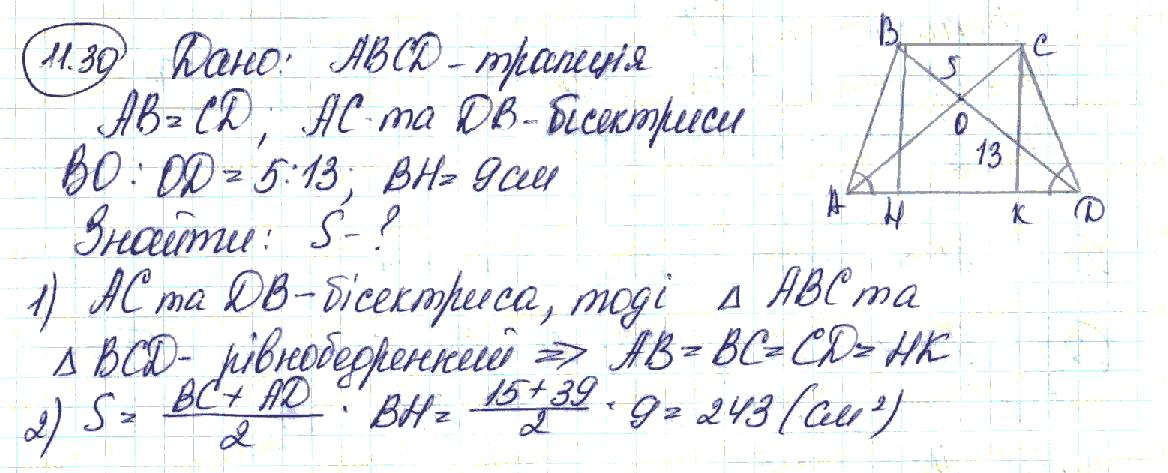 11.39 Дано: ABCD - трапеція
AB = CD; AC та DB - бісектриси
BO : OD = 5:13; BH = 9см
Знайти: S - ?
1) AC та DB - бісектриса, тоді △ ABC та
△ BCD - рівнобедренний => AB = BC = CD = HK
2) S = (BC + AD)/2 · BH = (15 + 39)/2 · 9 = 243 (см²)
B C
5
O
13
A H K D